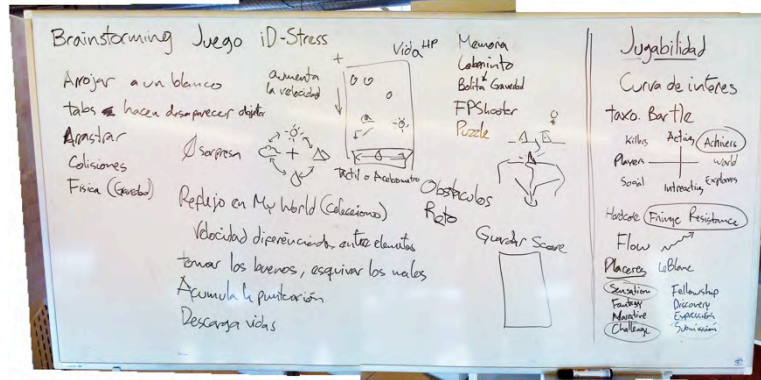 Brainstorming Juego iD-Stress
Arrojar a un blanco
tabs hacen desaparecer objetos
Arrastrar
Colisiones
Física (Gravedad)
aumenta
la velocidad
+
Vida HP
sorpresa
+
Táctil o Acelerómetro
Reflejo en My World (Coleccionismo)
Velocidad diferenciada entre elementos
tomar los buenos, esquivar los males
Acumula la puntuación
Descarga vidas
Memoria
Laberinto
Bolita Gravedad
FPShooter
Puzzle
Obstáculos
Reto
Guardar Score
Jugabilidad
Curva de interes
taxo. Bartle
Killers Acting Achivers
Players World
Social Interacting Explorers
Hardcore Fringe Resistance
Flow
Placeres LeBlanc
Sensation Fellowship
Fantasy Discovery
Narrative Expression
Challenge Submission